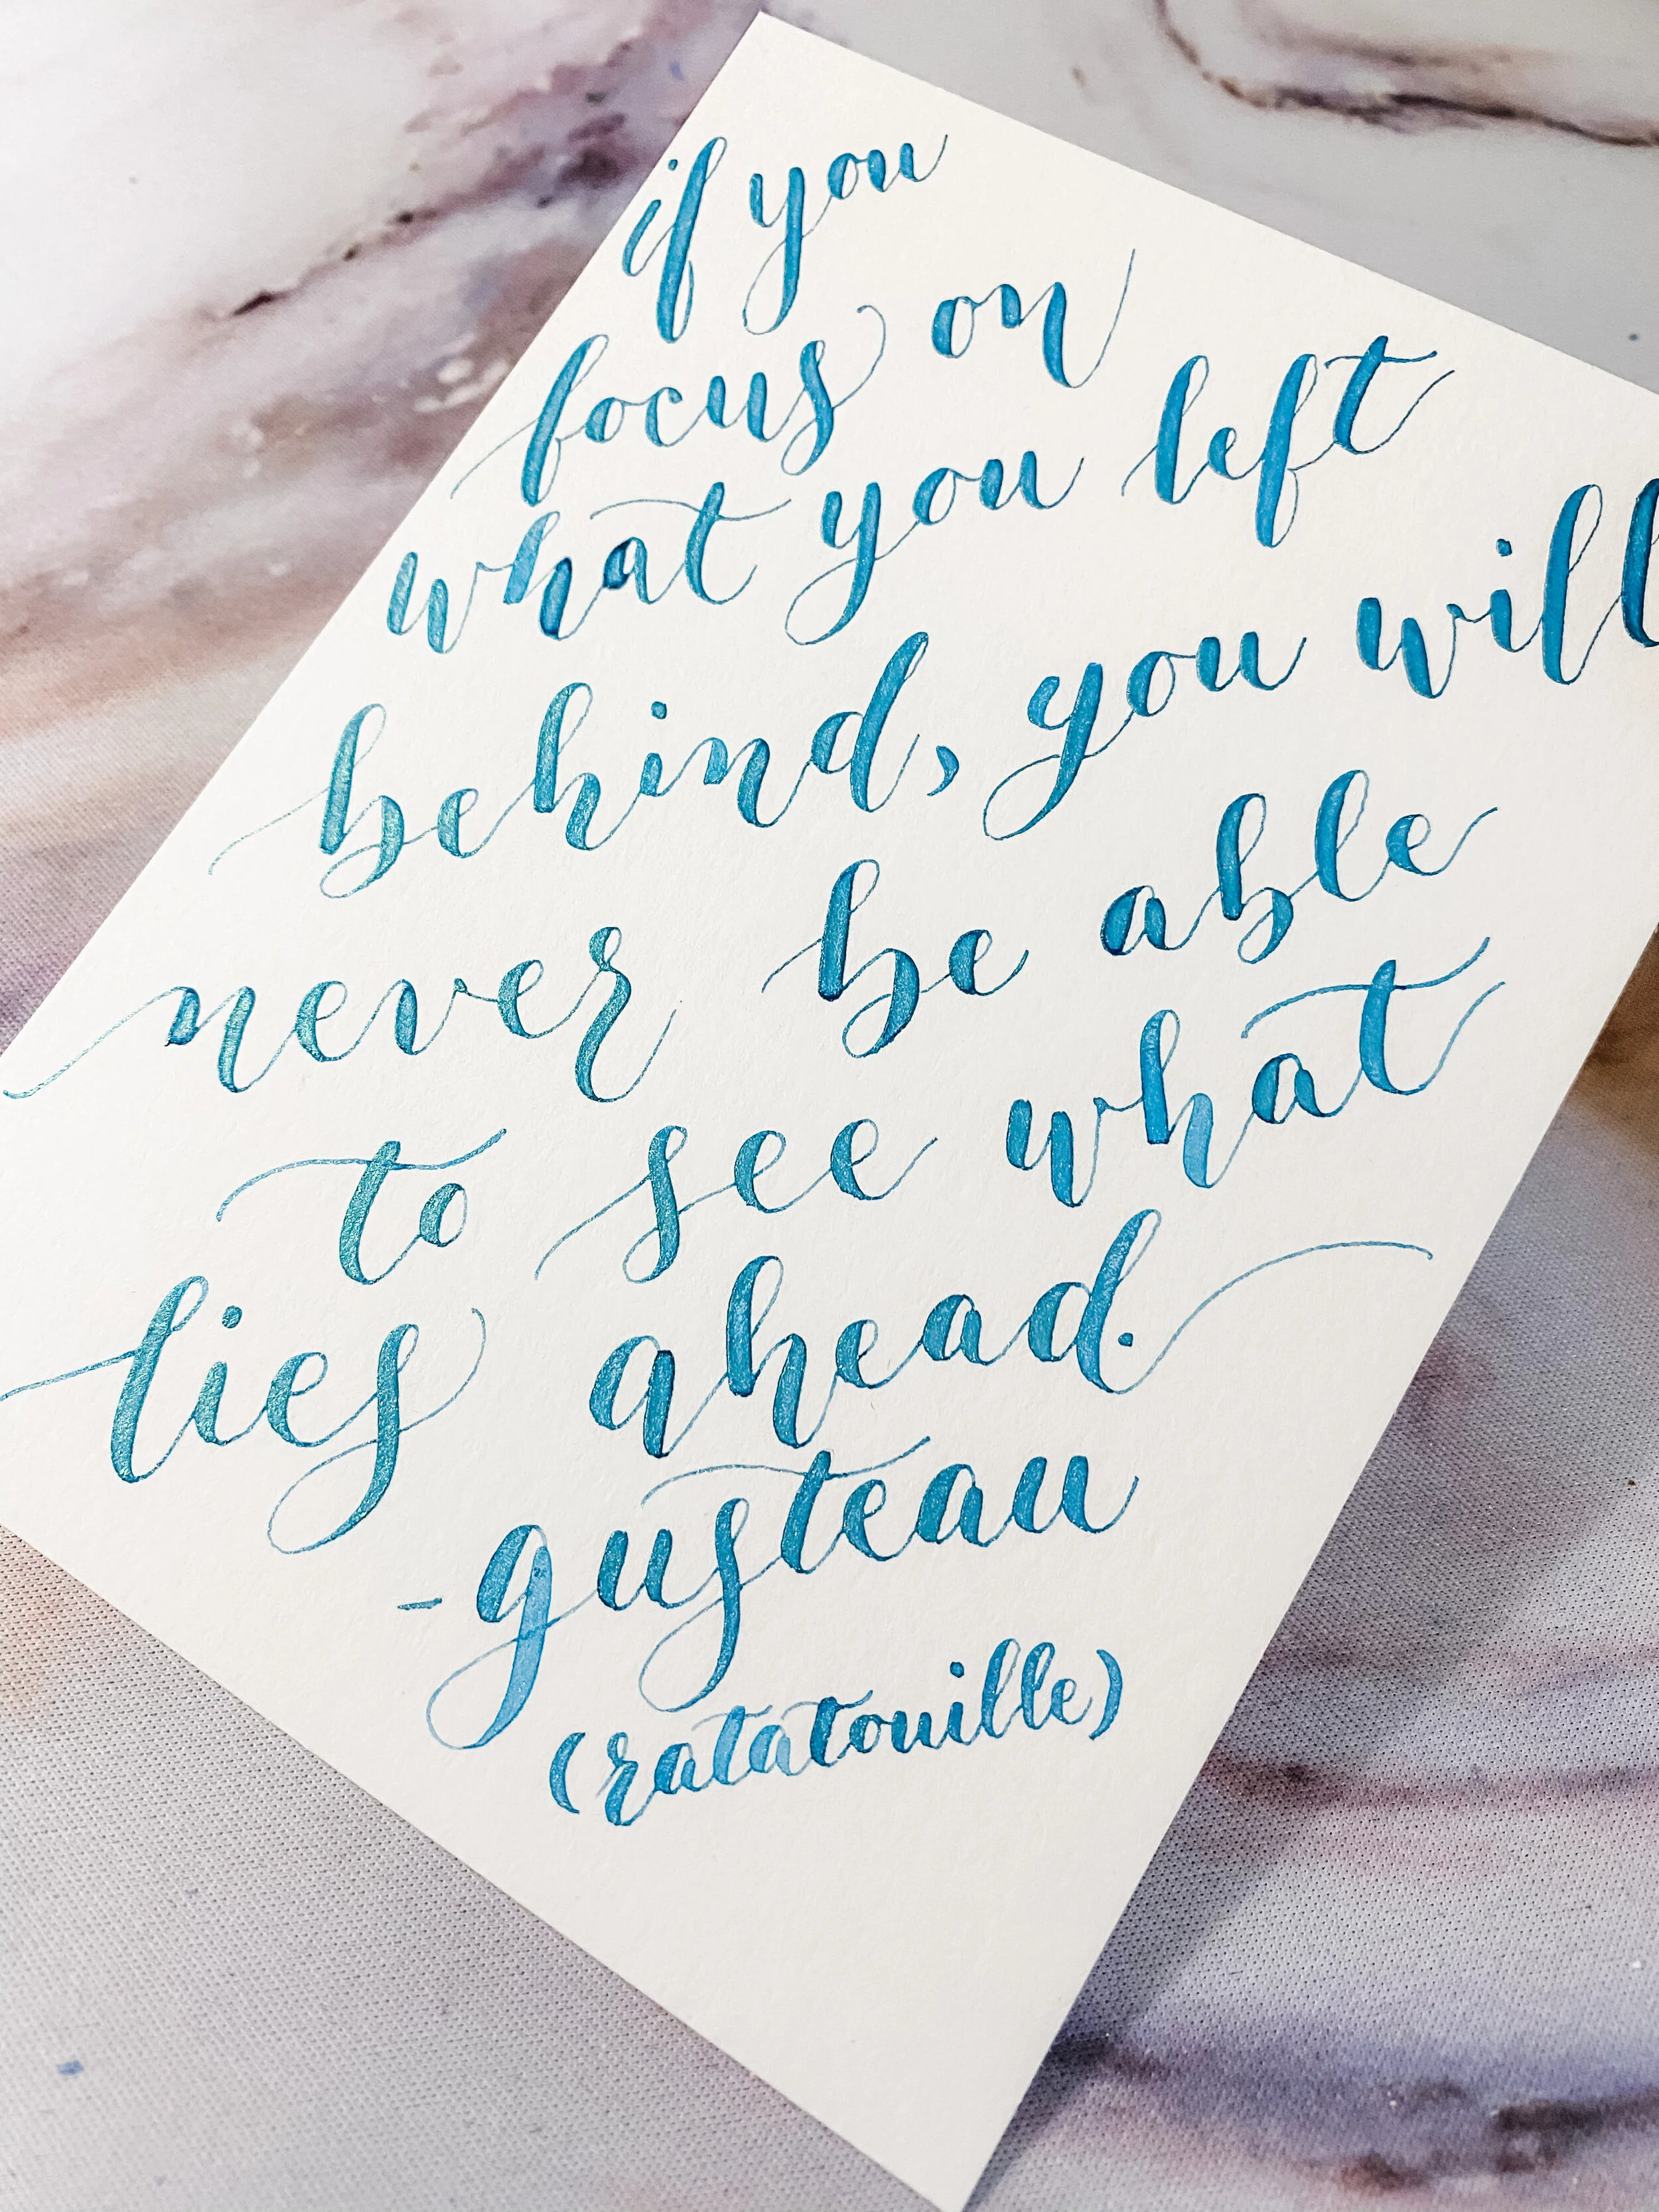 if you
focus on
what you left
behind, you will
never be able
to see what
lies ahead.
-gusteau
(ratatouille)